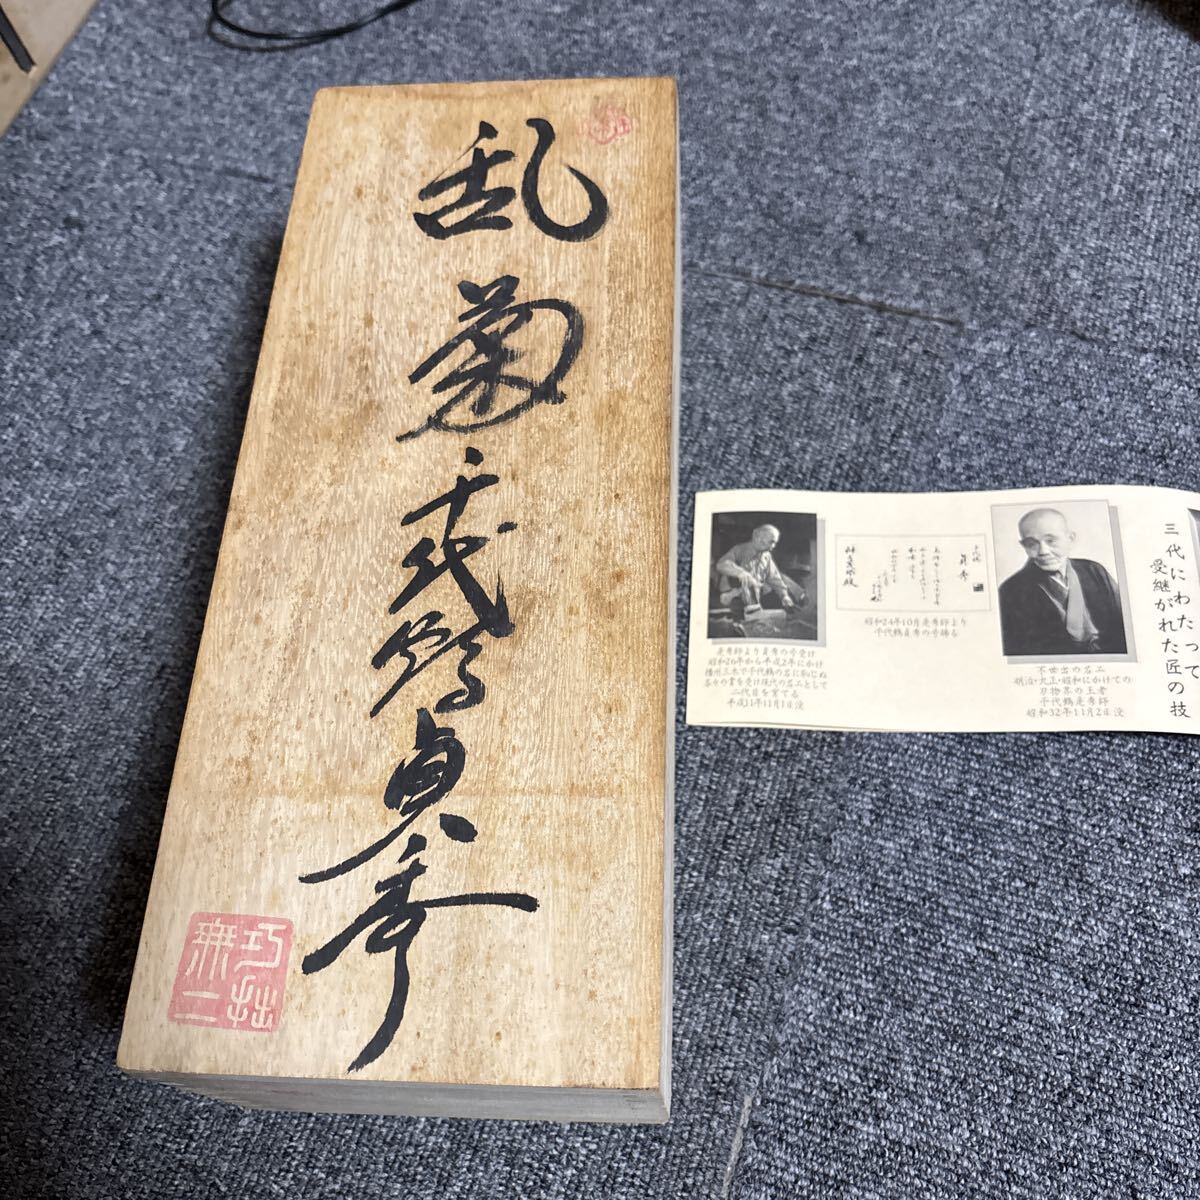 乱菊千代鶴貞秀
巧拙
無二
三代にわたって
受継がれた匠の技
不世出の名工
明治・大正・昭和にかけての
刃物界の王者
千代鶴是秀師
昭和32年11月2日没
昭和24年10月是秀師より
千代鶴貞秀の号賜る
千代鶴
貞秀
是秀師より貞秀の号受け
昭和26年から平成2年にかけ
播州三木で千代鶴の名に恥じぬ
名工として
二代目を育てる
平成11年11月1日没